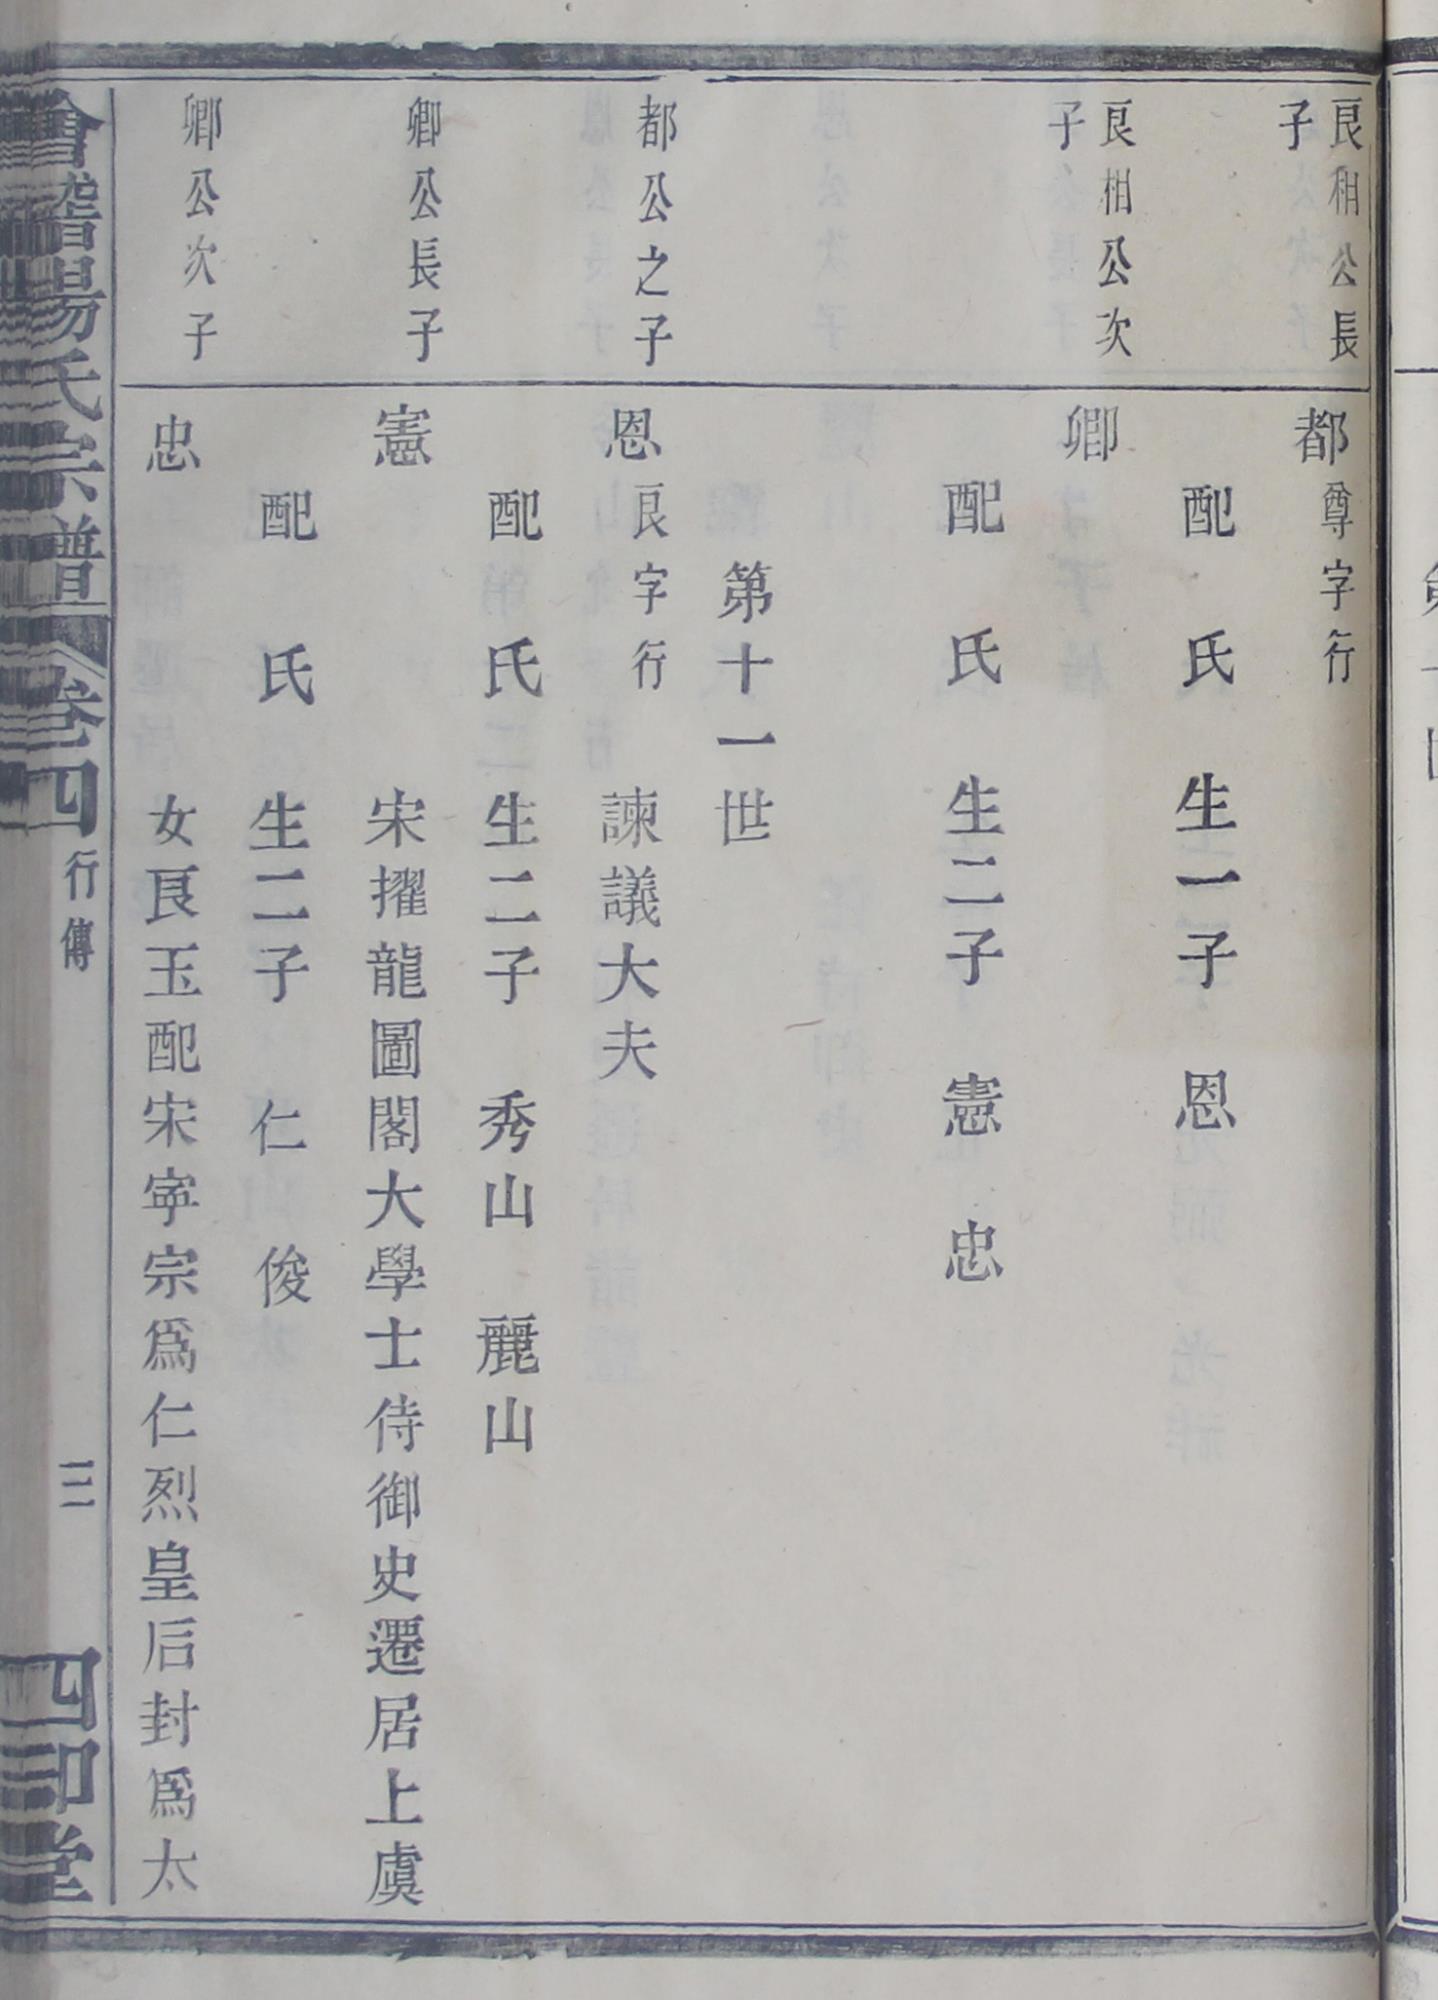 良相公長
子
都 尊字行
配 氏 生一子 恩
良相公次
子
卿
配 氏 生二子 憲 忠
第十一世
都公之子
恩 良字行 諫議大夫
配 氏 生二子 秀山 麗山
卿公長子
憲 宋擢龍圖閣大學士侍御史遷居上虞
配 氏 生二子 仁 俊
卿公次子
忠 女良玉配宋寧宗爲仁烈皇后封爲太
會稽楊氏宗譜 卷四 行傳 三 四知堂